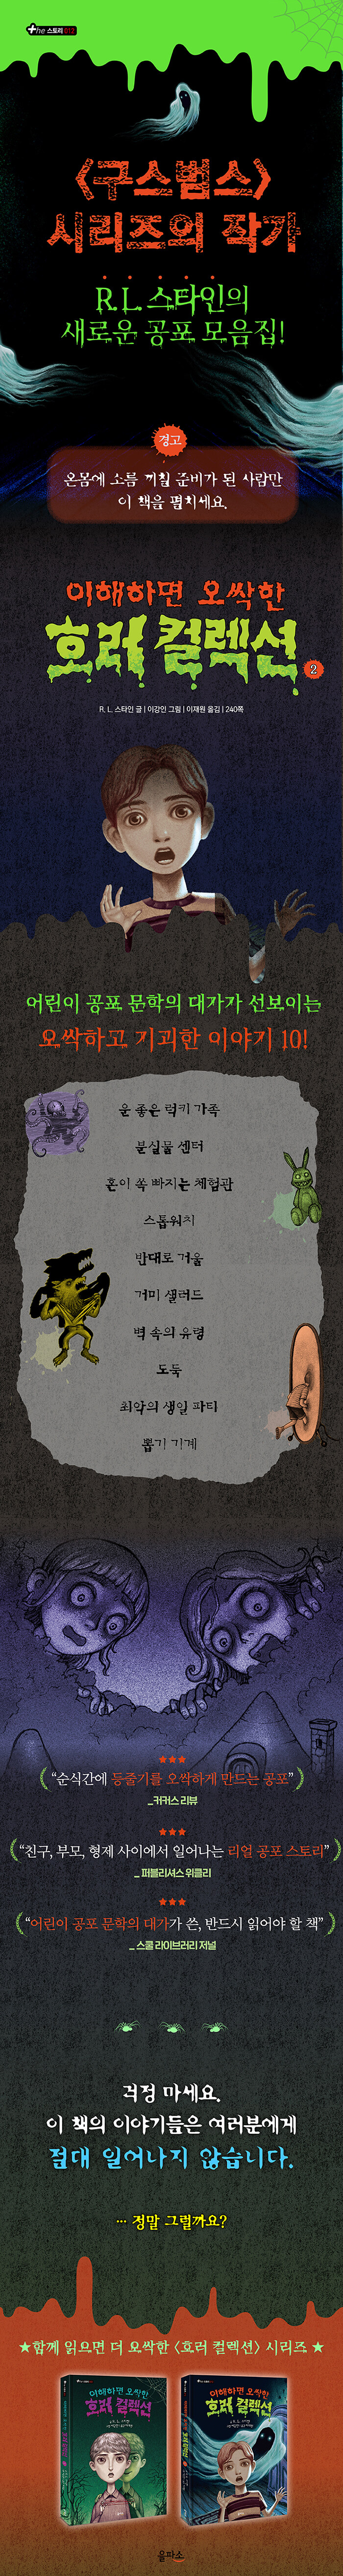 The 스토리 012
〈구스범스〉
시리즈의 작가
R. L. 스타인의
새로운 공포 모음집!
경고
온몸에 소름 끼칠 준비가 된 사람만
이 책을 펼치세요.
이해하면 오싹한
호러 컬렉션
2
R. L. 스타인 글 | 이강인 그림 | 이재원 옮김 | 240쪽
어린이 공포 문학의 대가가 선보이는
오싹하고 기괴한 이야기 10!
운 좋은 럭키 가족
분실물 센터
혼이 쏙 빠지는 체험관
스톱워치
반대로 거울
거미 샐러드
벽 속의 유령
도둑
최악의 생일 파티
뽑기 기계
★★★
“순식간에 등줄기를 오싹하게 만드는 공포”
_커커스 리뷰
★★★
“친구, 부모, 형제 사이에서 일어나는 리얼 공포 스토리”
_ 퍼블리셔스 위클리
★★★
“어린이 공포 문학의 대가가 쓴, 반드시 읽어야 할 책”
_ 스쿨 라이브러리 저널
걱정 마세요.
이 책의 이야기들은 여러분에게
절대 일어나지 않습니다.
… 정말 그럴까요?
★함께 읽으면 더 오싹한 〈호러 컬렉션〉 시리즈 ★
이해하면 오싹한
호러 컬렉션
이해하면 오싹한
호러 컬렉션
을파소